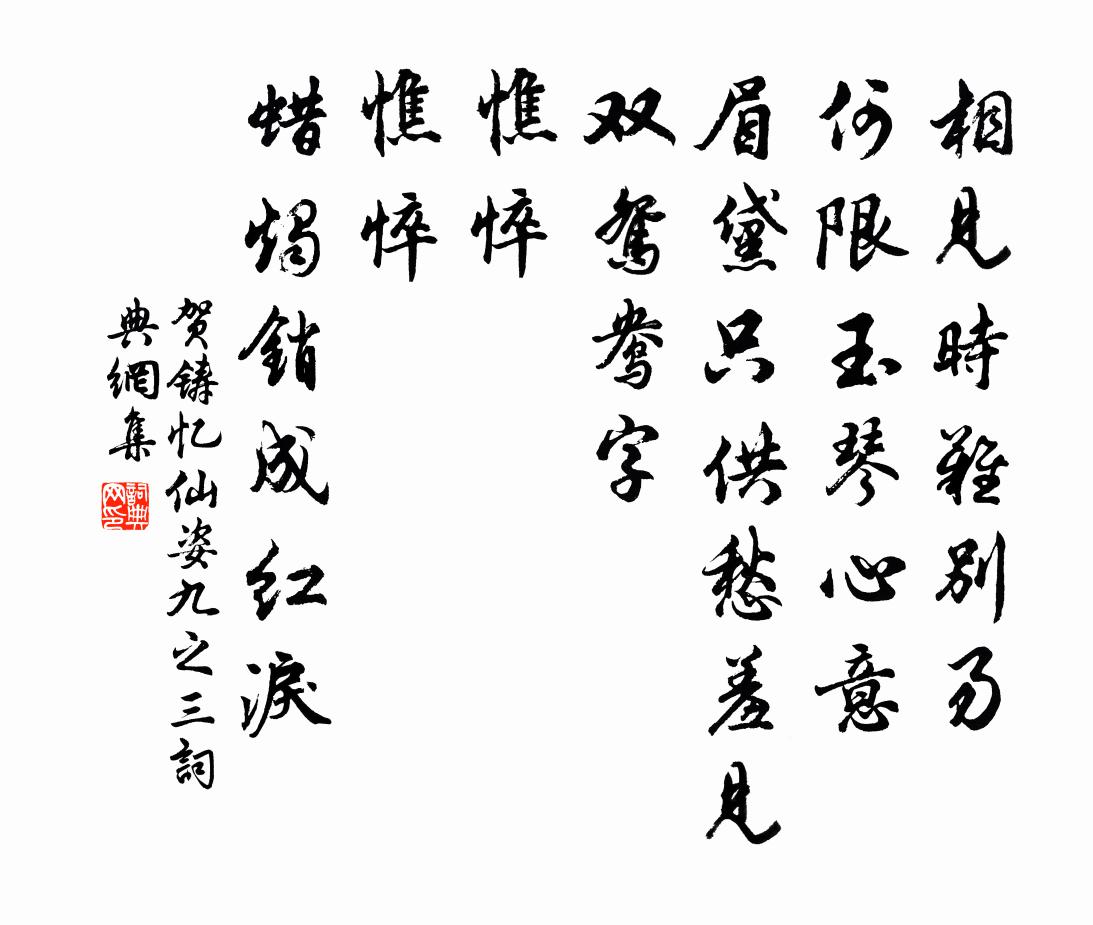 相見時難別易
何限玉琴心意
眉黛只供愁羞見
双鴛鴦字
憔悴
憔悴
蜡燭銷成紅淚
贺鑄忆仙姿九之三詞
典網集
詞典
网印